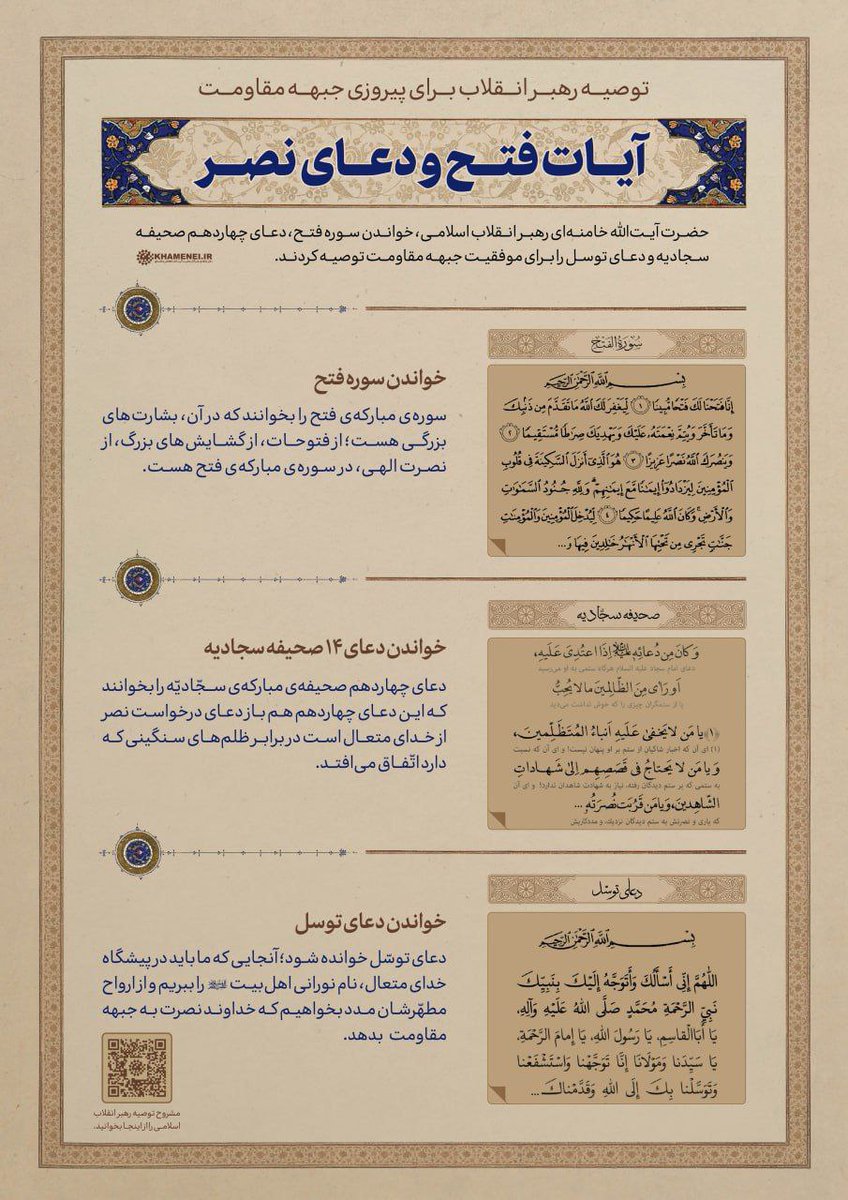 توصیه رهبر انقلاب برای پیروزی جبهه مقاومت
آیات فتح و دعای نصر
حضرت آیت‌الله خامنه‌ای رهبر انقلاب اسلامی، خواندن سوره فتح، دعای چهاردهم صحیفه
سجادیه و دعای توسل را برای موفقیت جبهه مقاومت توصیه کردند.
KHAMENEI.IR
سُورَةُ الفَتح
بِسْمِ اللَّهِ الرَّحْمَٰنِ الرَّحِيمِ
إِنَّا فَتَحْنَا لَكَ فَتْحًا مُبِينًا ﴿١﴾ لِيَغْفِرَ لَكَ اللَّهُ مَا تَقَدَّمَ مِن ذَنْبِكَ
وَمَا تَأَخَّرَ وَيُتِمَّ نِعْمَتَهُ عَلَيْكَ وَيَهْدِيَكَ صِرَاطًا مُسْتَقِيمًا ﴿٢﴾
وَيَنصُرَكَ اللَّهُ نَصْرًا عَزِيزًا ﴿٣﴾ هُوَ الَّذِي أَنزَلَ السَّكِينَةَ فِي قُلُوبِ
الْمُؤْمِنِينَ لِيَزْدَادُوا إِيمَانًا مَعَ إِيمَانِهِمْ ۗ وَلِلَّهِ جُنُودُ السَّمَاوَاتِ
وَالْأَرْضِ ۚ وَكَانَ اللَّهُ عَلِيمًا حَكِيمًا ﴿٤﴾ لِيُدْخِلَ الْمُؤْمِنِينَ وَالْمُؤْمِنَاتِ
جَنَّاتٍ تَجْرِي مِن تَحْتِهَا الْأَنْهَارُ خَالِدِينَ فِيهَا وَ...
خواندن سوره فتح
سوره‌ی مبارکه‌ی فتح را بخوانند که در آن، بشارت‌های
بزرگی هست؛ از فتوحات، از گشایش‌های بزرگ، از
نصرت الهی، در سوره‌ی مبارکه‌ی فتح هست.
صحیفه سجّادیه
وَ كَانَ مِن دُعائِهِ عليه السلام إِذَا اعتُدِىَ عَلَيهِ،
دعای امام سجاد علیه السلام هرگاه ستمی به او می‌رسید
أَو رَأى مِنَ الظّالِمينَ ما لا يُحِبُّ
یا از ستمگران چیزی را که خوش نداشت می‌دید
﴿١﴾ يا مَن لا يَخفىٰ عَلَيهِ أَنباءُ المُتَظَلِّمينَ،
(۱) ای آن که اخبار شاکیان از ستم بر او پنهان نیست! و ای آن که نسبت
وَ يا مَن لا يَحتاجُ فى قَصَصِهِم إِلىٰ شَهاداتِ
به ستمی که بر ستم دیدگان رفته، نیاز به شهادت شاهدان ندارد! و ای آن
الشّاهِدينَ، وَ يا مَن قَرُبَت نُصرَتُهُ ...
که یاری و نصرتش به ستم دیدگان نزدیک، و مددکاریش
خواندن دعای ۱۴ صحیفه سجادیه
دعای چهاردهم صحیفه‌ی مبارکه‌ی سجّادیّه را بخوانند
که این دعای چهاردهم هم باز دعای درخواست نصر
از خدای متعال است در برابر ظلم‌های سنگینی که
دارد اتّفاق می‌افتد.
دعای توسّل
بِسْمِ اللَّهِ الرَّحْمَٰنِ الرَّحِيمِ
اللّٰهُمَّ إِنِّي أَسْأَلُكَ وَأَتَوَجَّهُ إِلَيْكَ بِنَبِيِّكَ
نَبِيِّ الرَّحْمَةِ مُحَمَّدٍ صَلَّى اللهُ عَلَيْهِ وَآلِهِ،
يَا أَبَا الْقاسِمِ، يَا رَسُولَ اللهِ، يَا إِمامَ الرَّحْمَةِ،
يَا سَيِّدَنا وَمَوْلَانَا إِنَّا تَوَجَّهْنا وَاسْتَشْفَعْنا
وَتَوَسَّلْنا بِكَ إِلَى اللهِ وَقَدَّمْناكَ...
خواندن دعای توسل
دعای توسّل خوانده شود؛ آنجایی که ما باید در پیشگاه
خدای متعال، نام نورانی اهل بیت علیهم السلام را ببریم و از ارواح
مطهّرشان مدد بخواهیم که خداوند نصرت به جبهه
مقاومت بدهد.
مشروح توصیه رهبر انقلاب
اسلامی را از اینجا بخوانید.